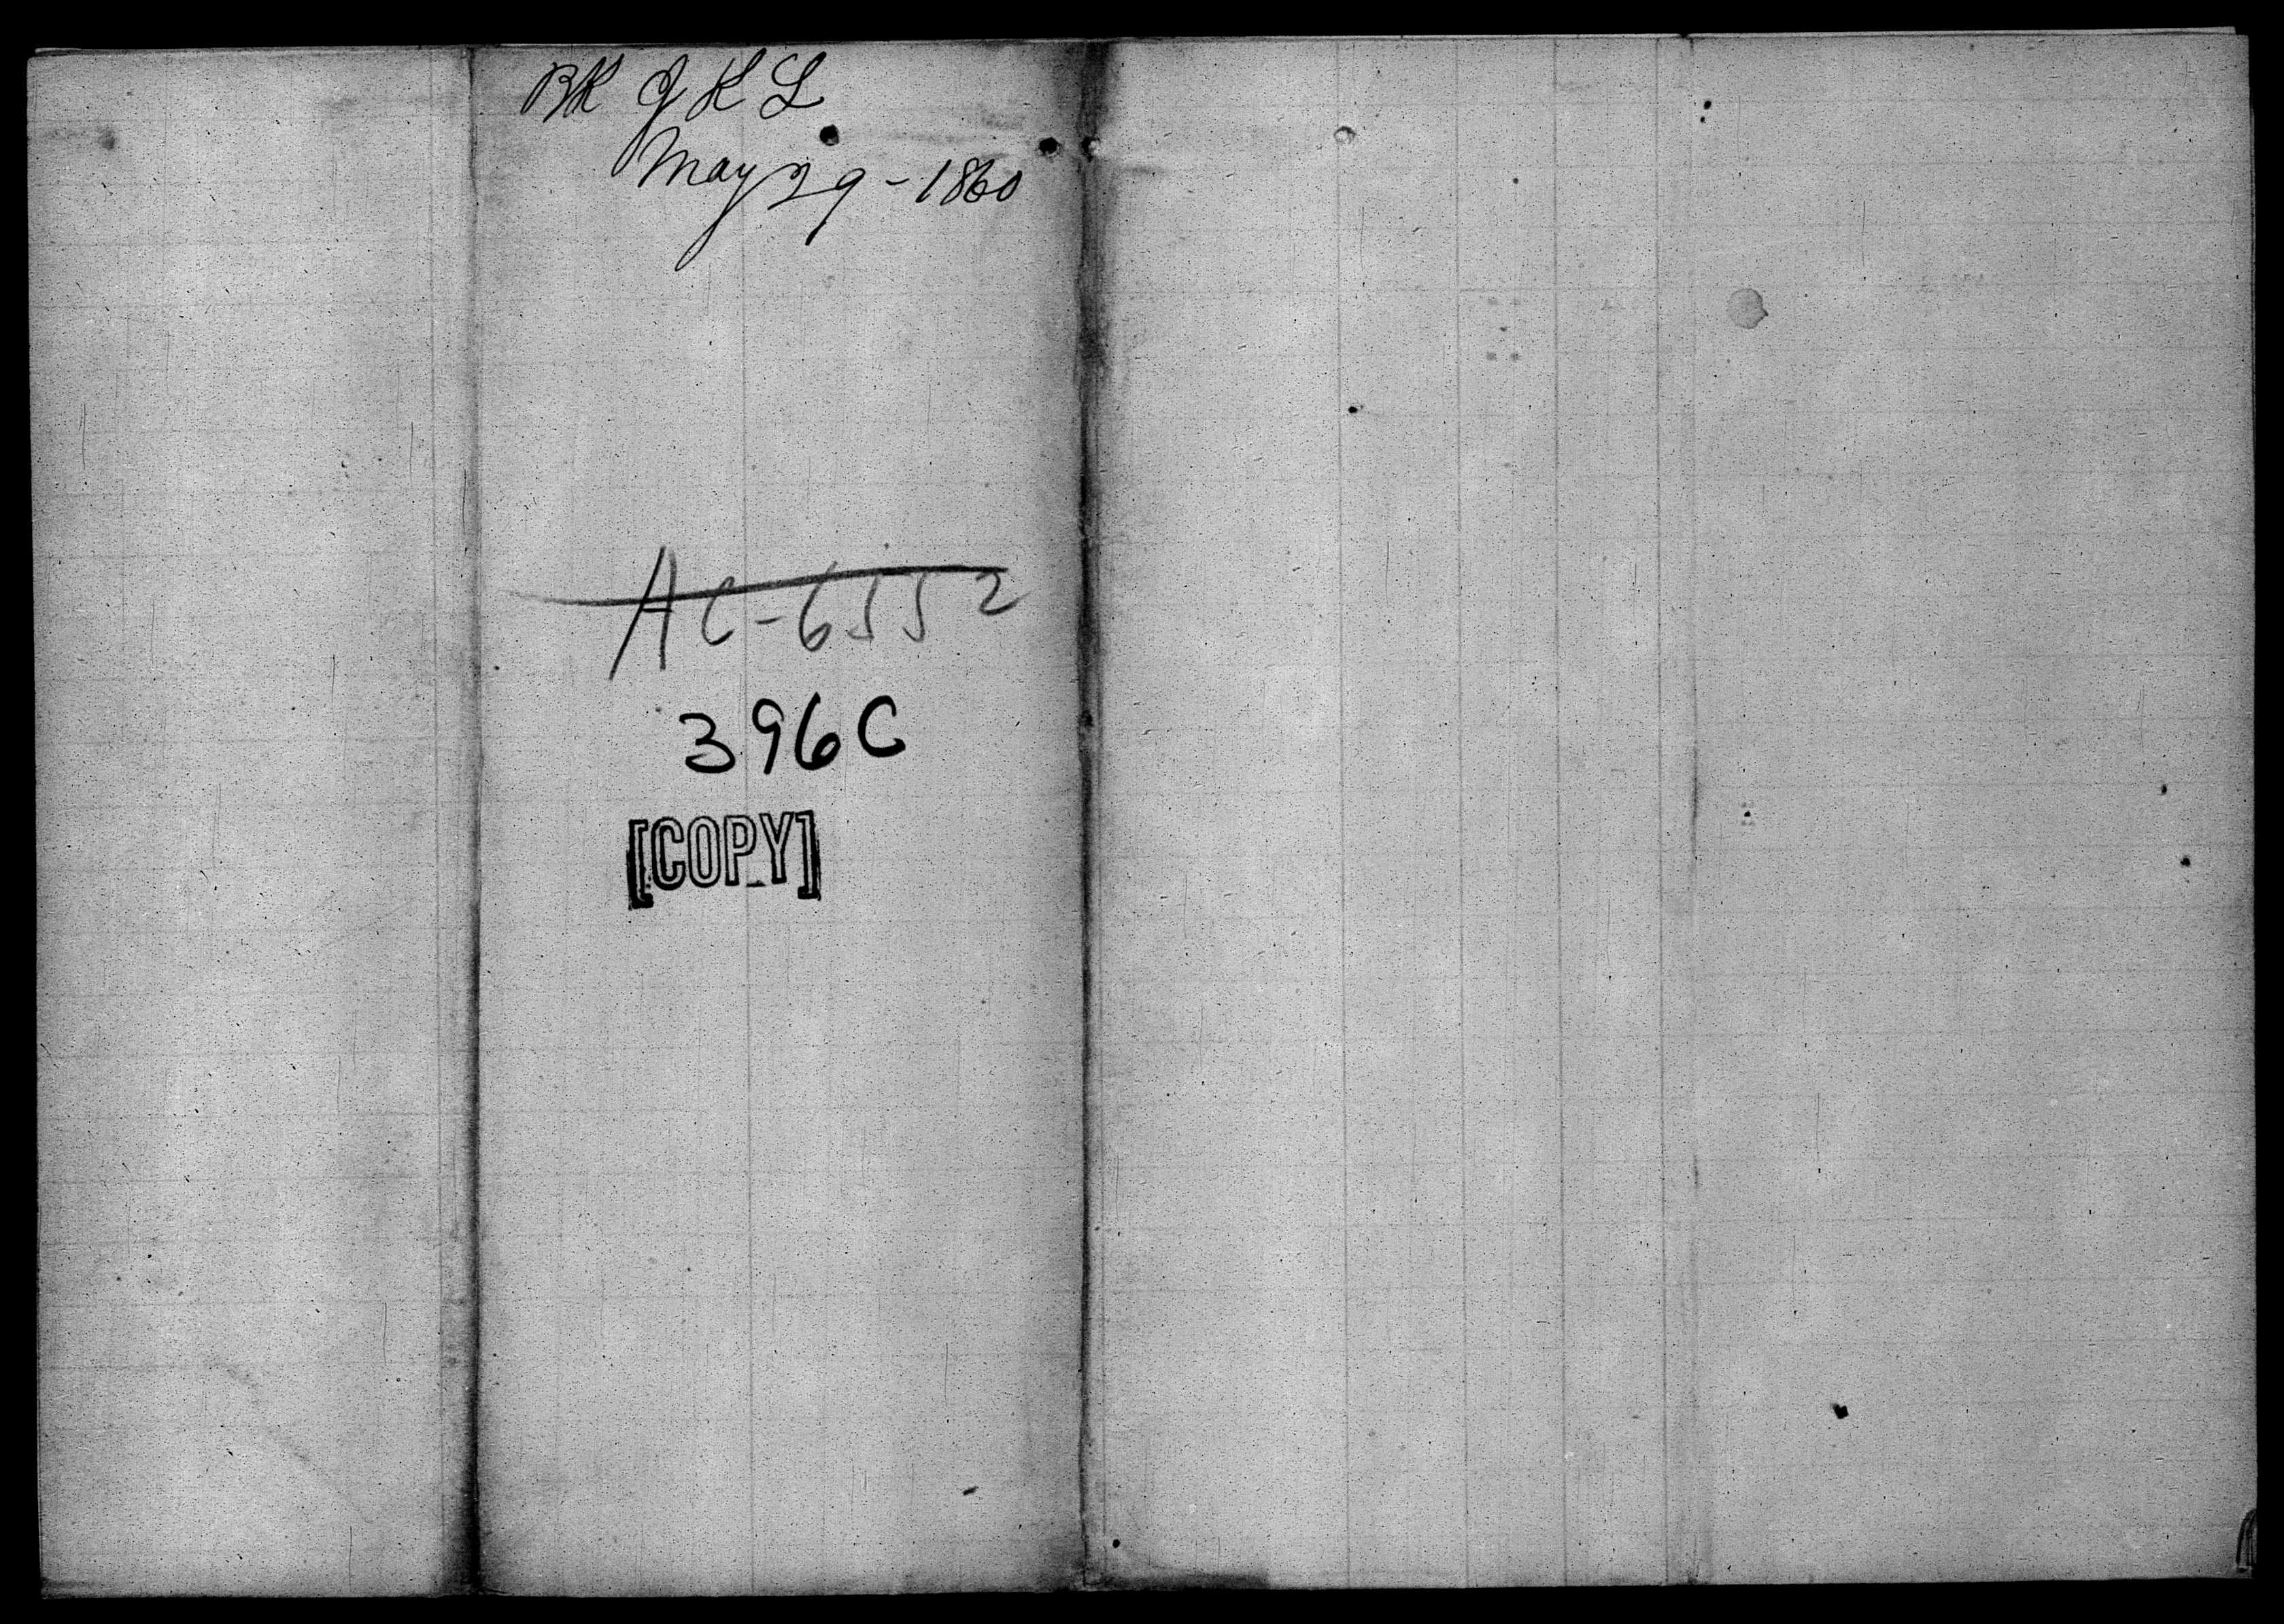 BK J K L
May 29 - 1860
AC-6552
396C
[COPY]